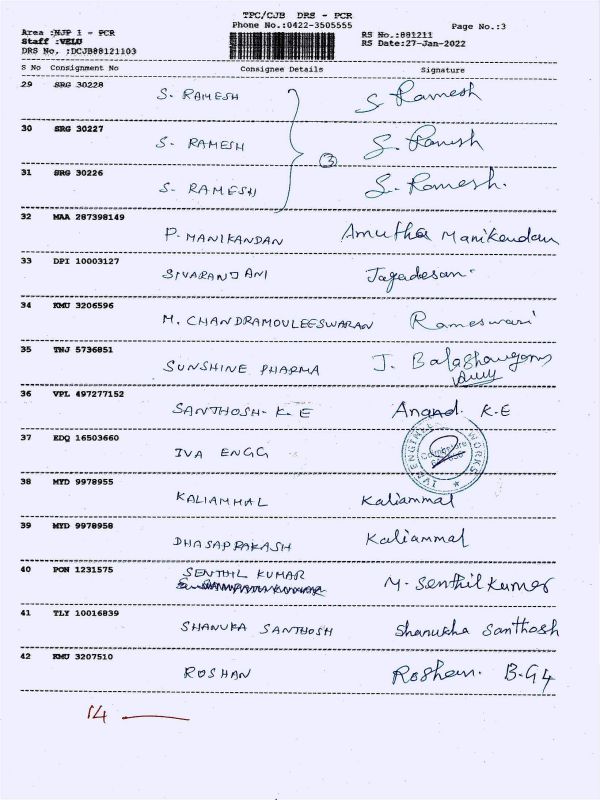 TPC/CJB DRS - PCR
Phone No.:0422-3505555
Page No.:3
Area :NJP 1 - PCR
RS No.:881211
Staff :VELU
RS Date:27-Jan-2022
DRS No. :DCJB88121103
S No Consignment No Consignee Details Signature
29 SRG 30228
S. RAMESH S Ramesh
30 SRG 30227
S. RAMESH S. Ramesh
3
31 SRG 30226
S. RAMESH S. Ramesh.
32 MAA 287398149
P. MANIKANDAN Amutha Manikandan
33 DPI 10003127
SIVARANJANI Jagadesan
34 KMU 3206596
M. CHANDRAMOULEESWARAN Rameswari
35 TNJ 5736851
SUNSHINE PHARMA J.
36 VPL 497277152
SANTHOSH- K. E Anand. K.E
37 EDQ 16503660
IVA ENGG
IVA ENGINEERING WORKS
Coimbatore
38 MYD 9978955
KALIAMMAL Kaliammal
39 MYD 9978958
DHASAPRAKASH Kaliammal
40 PON 1231575
SENTHIL KUMAR M. Senthil Kumar
41 TLY 10016839
SHANUKA SANTHOSH Shanukha Santhosh
42 KMU 3207510
ROSHAN Roshan. B.G4
14